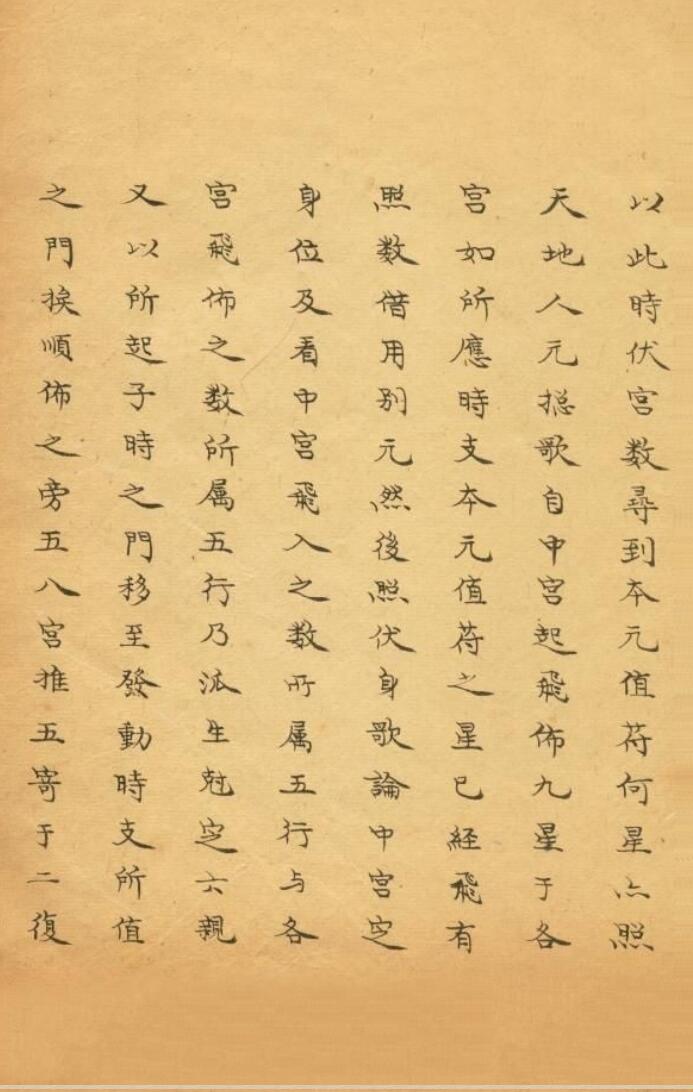 以此時伏宮数尋到本元值苻何星亦照
天地人元捴歌自中宮起飛佈九星于各
宮如所應時支本元值苻之星已經飛有
照数借用别元然後照伏身歌論中宮定
身位及看中宮飛入之数所属五行与各
宮飛佈之数所属五行乃派生尅定六親
又以所起子時之門移至發動時支所值
之門挨順佈之旁五八宮推五寄于二復